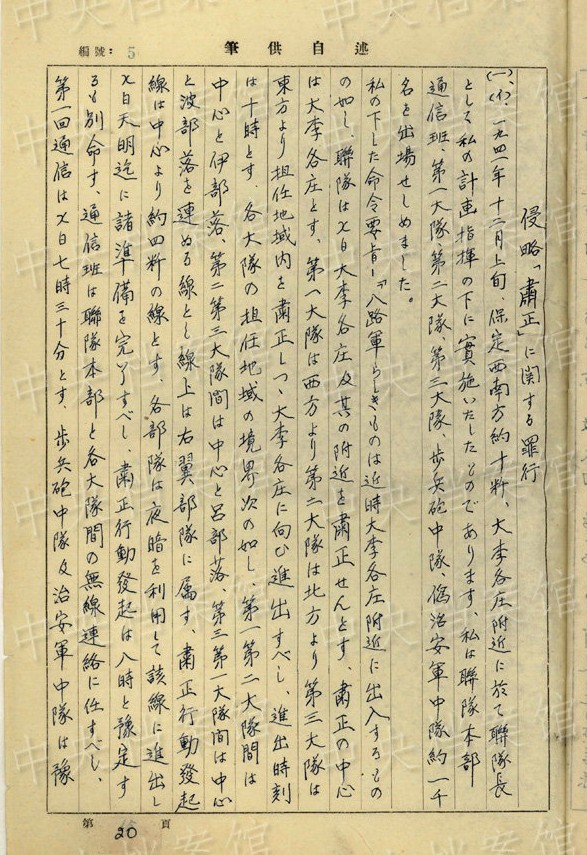 編號：5
筆供自述
侵略「肅正」に関する罪行
(一)、(イ)、一九四一年十二月上旬、保定西南方約十粁、大李各庄附近に於て聯隊長
として私の計画指揮の下に実施いたしたものであります、私は聯隊本部
通信班、第一大隊、第二大隊、第三大隊、歩兵砲中隊、偽治安軍中隊約一千
名を出場せしめました。
私の下した命令要旨―「八路軍らしきものは近時大李各庄附近に出入するもの
の如し、聯隊はX日大李各庄及其の附近を肅正せんとす、肅正の中心
は大李各庄とす、第一大隊は西方より第二大隊は北方より第三大隊は
東方より担任地域内を肅正しつゝ大李各庄に向ひ進出すべし、進出時刻
は十時とす、各大隊の担任地域の境界次の如し、第一第二大隊間は
中心と伊部落、第二第三大隊間は中心と呂部落、第三第一大隊間は中心
と波部落を連ぬる線とし線上は右翼部隊に属す、肅正行動發起
線は中心より約四粁の線とす、各部隊は夜暗を利用して該線に進出し
X日天明迄に諸準備を完了すべし、肅正行動發起は八時と豫定す
るも別命す、通信班は聯隊本部と各大隊間の無線連絡に任ずべし、
第一回通信はX日七時三十分とす、歩兵砲中隊及治安軍中隊は豫
第20頁
中央档案馆